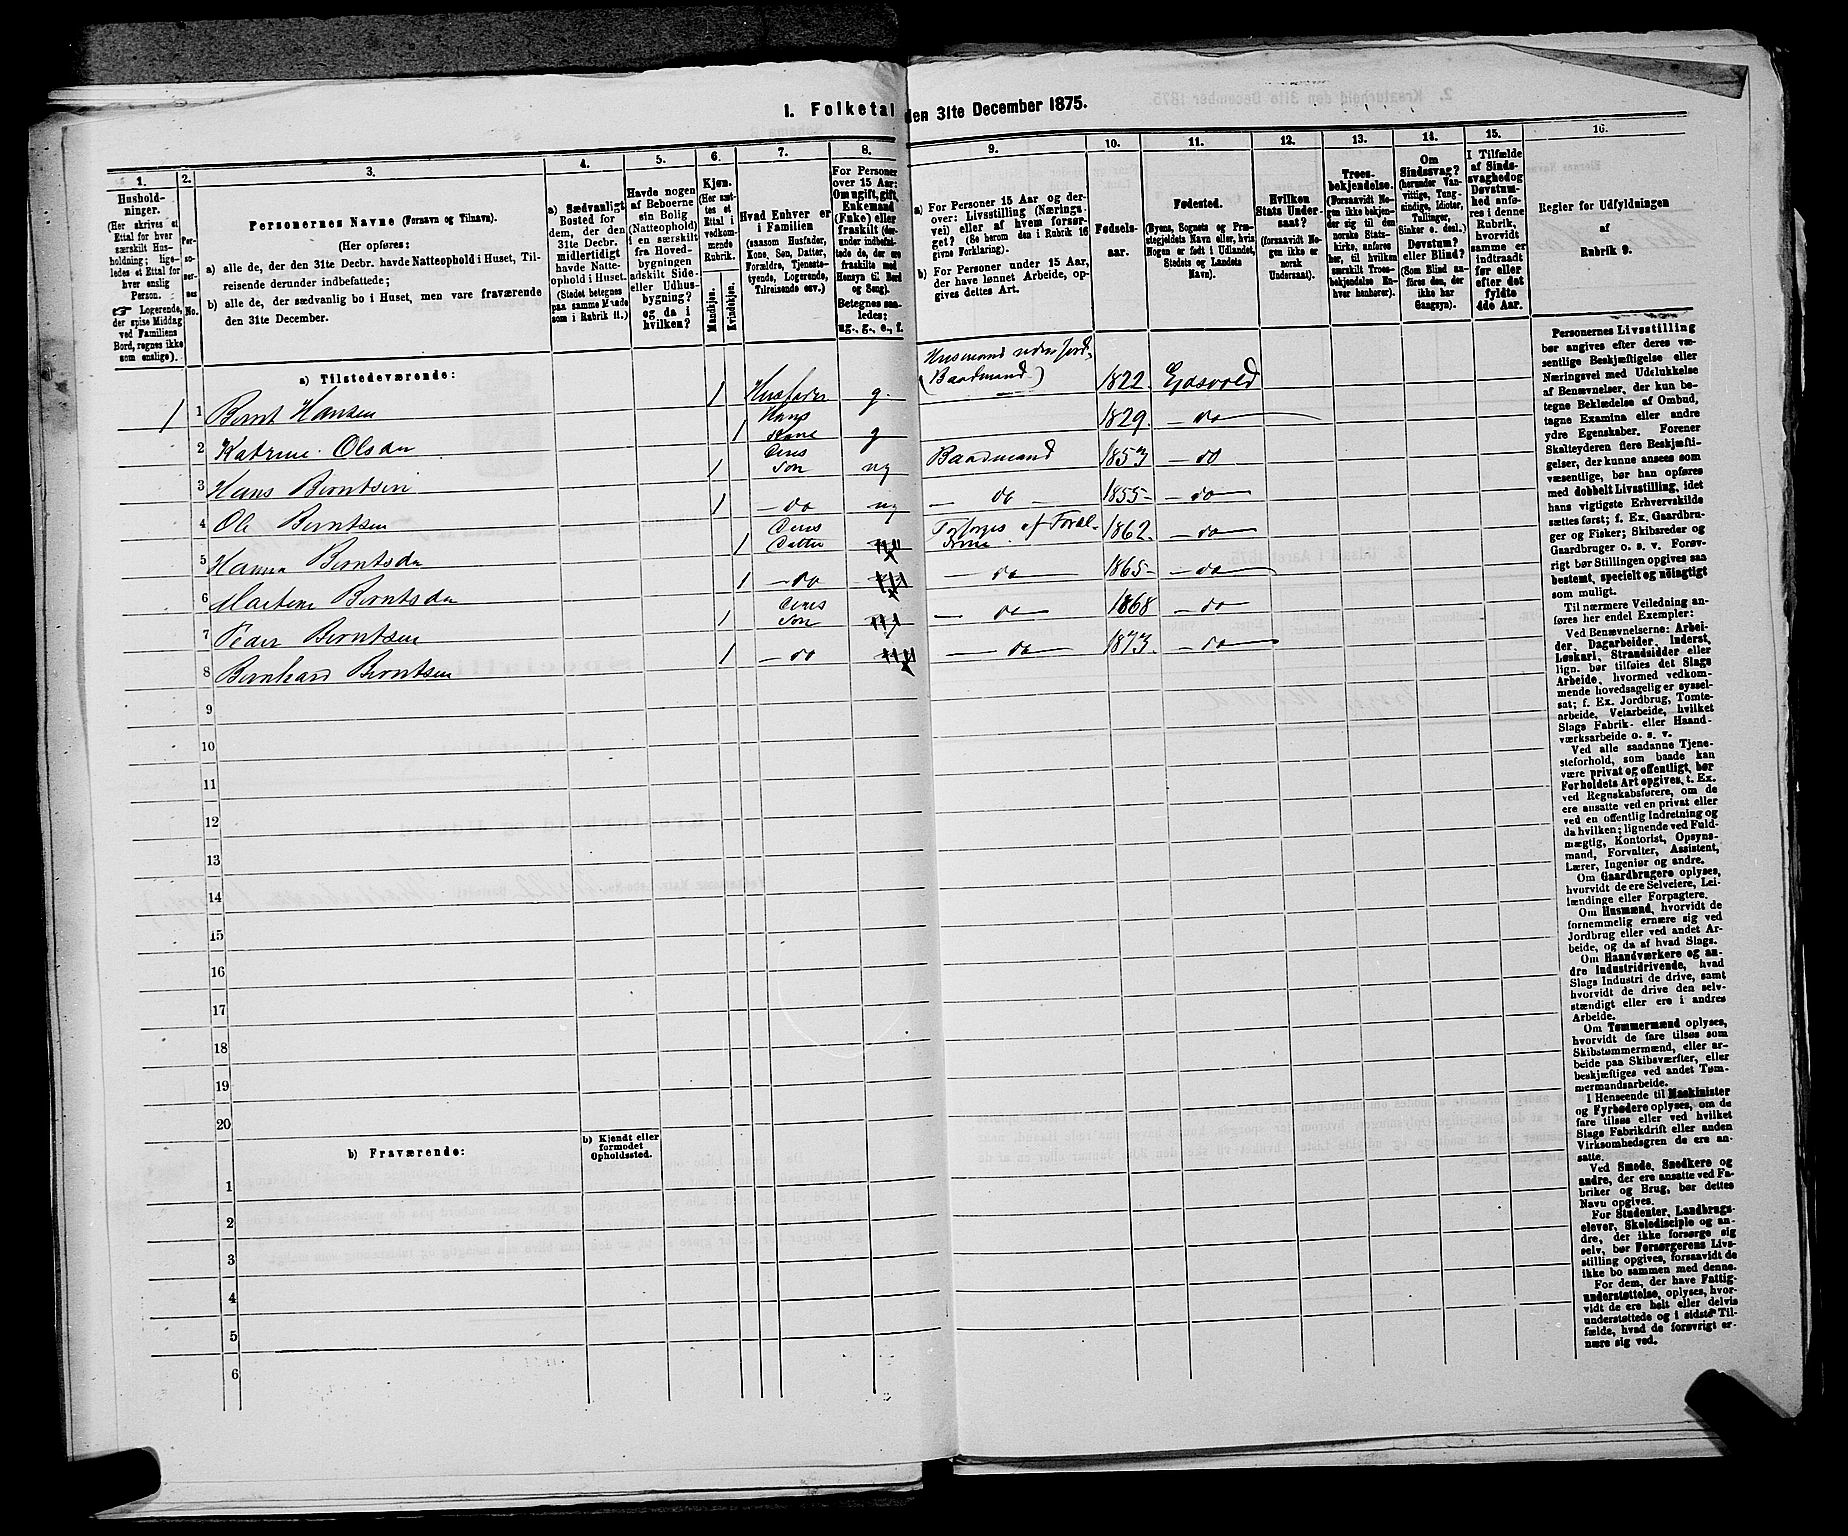 I. Folketal den 31te December 1875.
1. 2. 3. 4. 5. 6. 7. 8. 9. 10. 11. 12. 13. 14. 15. 16.
Hushold-
ninger.
(Her skrives et
Ettal for hver
særskilt Hus-
holdning; lige-
ledes et Ettal for
hver enslig
Person.
☞ Logerende,
der spise Middag
ved Familiens
Bord, regnes ikke
som enslige).
Per-
so-
ner-
nes
No.
Personernes Navne (Fornavn og Tilnavn).
(Her opføres:
a) alle de, der den 31te Decbr. havde Natteophold i Huset, Til-
reisende derunder indbefattede;
b) alle de, der sædvanlig bo i Huset, men vare fraværende
den 31te December.
a) Sædvanligt
Bosted for
dem, der den
31te Decbr.
midlertidigt
havde Natte-
ophold i Huset.
(Stedet betegnes
paa samme Maade
som i Rubrik 11.)
Havde nogen
af Beboerne
sin Bolig
(Natteophold)
i en særskilt
fra Hoved-
bygningen
adskilt Side-
eller Udhus-
bygning?
og da i
hvilken?
Kjøn.
(Her sæt-
tes et
Ettal i
vedkom-
mende
Rubrik.
Mandkjøn.
Kvindekjøn.
Hvad Enhver er
i Familien
(saasom Husfader,
Kone, Søn, Datter,
Forældre, Tjeneste-
tyende, Logerende,
Tilreisende osv.)
For Personer
over 15 Aar:
Om ugift, gift,
Enkemand
(Enke) eller
fraskilt (der-
under indbefat-
tede de, der ere
fraskilte med
Hensyn til Bord
og Seng).
Betegnes saa-
ledes:
ug., g., e., f.
a) For Personer 15 Aar og der-
over: Livsstilling (Nærings-
vei) eller af hvem forsør-
get? (Se herom den i Rubrik 16
givne Forklaring).
b) For Personer under 15 Aar,
der have lønnet Arbeide, op-
gives dettes Art.
Fødsels-
aar.
Fødested.
(Byens, Sognets og Præ-
stegjeldets Navn eller, hvis
Nogen er født i Udlandet,
Stedets og Landets
Navn).
Hvilken
Stats Under-
saat?
(forsaavidt No-
gen ikke er
norsk
Undersaat).
Troes-
bekjendelse.
(Forsaavidt No-
gen ikke bekjen-
der sig til den
norske Stats-
kirke, anføres
her, til hvilken
særskilt Troes-
bekjendelse En-
hver henhører).
Om
Sindssvag?
(herunder Van-
vittige, Tung-
sindige, Idioter,
Tullinger,
Sinker o. desl.)
Døvstum?
eller Blind?
(Som Blind an-
føres den, der
ikke har
Gangsyn).
I Tilfælde
af Sinds-
svaghed og
Døvstum-
hed anfø-
res i denne
Rubrik,
hvorvidt
samme er
indtraadt
før eller
efter det
fyldte
4de Aar.
Regler for Udfyldningen
af
Rubrik 9.
a) Tilstedeværende:
1 1 Bernt Hansen 1 Husfader g. Husmand uden Jord, (Baadmand) 1822. Eidsvold
2 Katrine Olsdtr 1 Hans Kone g 1829. do
3 Hans Berntsen 1 Deres Søn ug Baadmand 1853 do
4 Ole Berntsen 1 do ug do 1855 do
5 Hanna Berntsdtr 1 Deres Datter Forsørges af Foræl- 1862. do
6 Martine Berntsdtr 1 do do 1865 do
7 Peder Berntsen 1 Deres Søn do 1868 do
8 Bernhard Berntsen 1 do do 1873. do
9
10
11
12
13
14
15
16
17
18
19
20
b) Fraværende:
b) Kjendt eller
formodet
Opholdssted.
1
2
3
4
5
6
Personernes Livsstilling
bør angives efter deres væ-
sentlige Beskjæftigelse eller
Næringsvei med Udelukkelse
af Benævnelser, der kun be-
tegne Beklædelse af Ombud,
tagne Examina eller andre
ydre Egenskaber. Forener
Skatteyderen flere Beskjæfti-
gelser, der kunne ansees som
væsentlige, bør han opføres
med dobbelt Livsstilling, idet
hans vigtigste Erhvervskilde
sættes først; f. Ex. Gaardbru-
ger og Fisker; Skibsreder og
Gaardbruger o. s. v. Forøv-
rigt bør Stillingen opgives saa
bestemt, specielt og nøiagtigt
som muligt.
Til nærmere Veiledning an-
føres her endel Exempler:
Ved Benævnelserne: Arbei-
der, Dagarbeider, Inderst,
Løskarl, Strandsidder eller
lign. bør tilføies det Slags
Arbeide, hvormed vedkom-
mende hovedsagelig er syssel-
sat; f. Ex. Jordbrug, Tomte-
arbeide, Veiarbeide, hvilket
Slags Fabrik- eller Haand-
værksarbeide o. s. v.
Ved alle saadanne Tjene-
steforhold, som baade kan
være privat og offentligt, bør
Forholdets Art opgives, t. Ex.
ved Regnskabsførere, om de
ere ansatte ved en privat eller
ved en offentlig Indretning og
da hvilken; lignende ved Fuld-
mægtig, Kontorist, Opsyns-
mand, Forvalter, Assistent,
Lærer, Ingeniør og andre.
Om Gaardbrugere oplyses,
hvorvidt de ere Selveiere, Lei-
lændinge eller Forpagtere.
Om Husmænd, hvorvidt de
fornemmelig ernære sig ved
Jordbrug eller ved andet Ar-
beide, og da af hvad Slags.
Om Haandværkere og an-
dre Industridrivende, hvad
Slags Industri de drive, samt
hvorvidt de drive den selv-
stændigt eller ere i andres
Arbeide.
Om Tømmermænd oplyses,
hvorvidt de fare tilsøs som
Skibstømmermænd, eller ar-
beide paa Skibsværfter, eller
beskjæftiges ved andet Tøm-
mermandsarbeide.
I Henseende til Maskinister
og Fyrbødere oplyses, om de
fare tilsøs eller ved hvilket
Slags Fabrikdrift eller anden
Virksomhedsgren de ere an-
satte.
Ved Smede, Snedkere og
andre, der ere ansatte ved Fa-
briker og Brug, bør dettes
Navn opgives.
For Studenter, Landbrugs-
elever, Skoledisciple og an-
dre, der ikke forsørge sig
selv, bør Forsørgerens Livs-
stilling opgives, forsaavidt de
ikke bo sammen med denne.
For dem, der have Fattig-
understøttelse, oplyses, hvor-
vidt de ere helt eller delvis
understøttede og i sidste Til-
fælde, hvad de forøvrigt er-
nære sig ved.